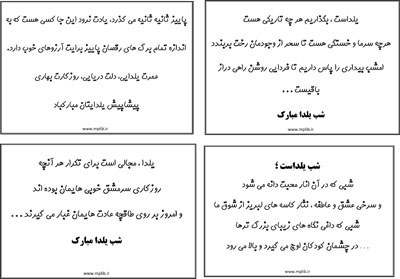 یلداست ، بگذاریم هر چه تاریکی هست
هرچه سرما و خستگی هست تا سحر از وجودمان رخت بربندد
امشب بیداری را پاس داریم تا فردایی روشن راهی دراز
باقیست ...
شب یلدا مبارک
www.mplib.ir
پاییز ثانیه ثانیه می گذرد، یادت نرود این جا کسی هست که به
اندازه تمام برگ های رقصان پاییز برایت آرزوهای خوب دارد.
عمرت یلدایی، دلت دریایی، روزگارت بهاری
پیشاپیش یلدایتان مبارکباد
www.mplib.ir
شب یلداست ؛
شبی که در آن انار محبت دانه می شود
و سرخی عشق و عاطفه ، نثار کاسه های لبریز از شوق ما
شبی که داغی نگاه های زیبای بزرگ ترها
در چشمان کودکان اوج می گیرد و بالا می رود ...
www.mplib.ir
یلدا ، مجالی است برای تکرار هر آنچه
روزگاری سرمشق خوبی هایمان بوده اند
و امروز بر روی طاقچه عادت هایمان غبار می گیرند ...
شب یلدا مبارک
www.mplib.ir